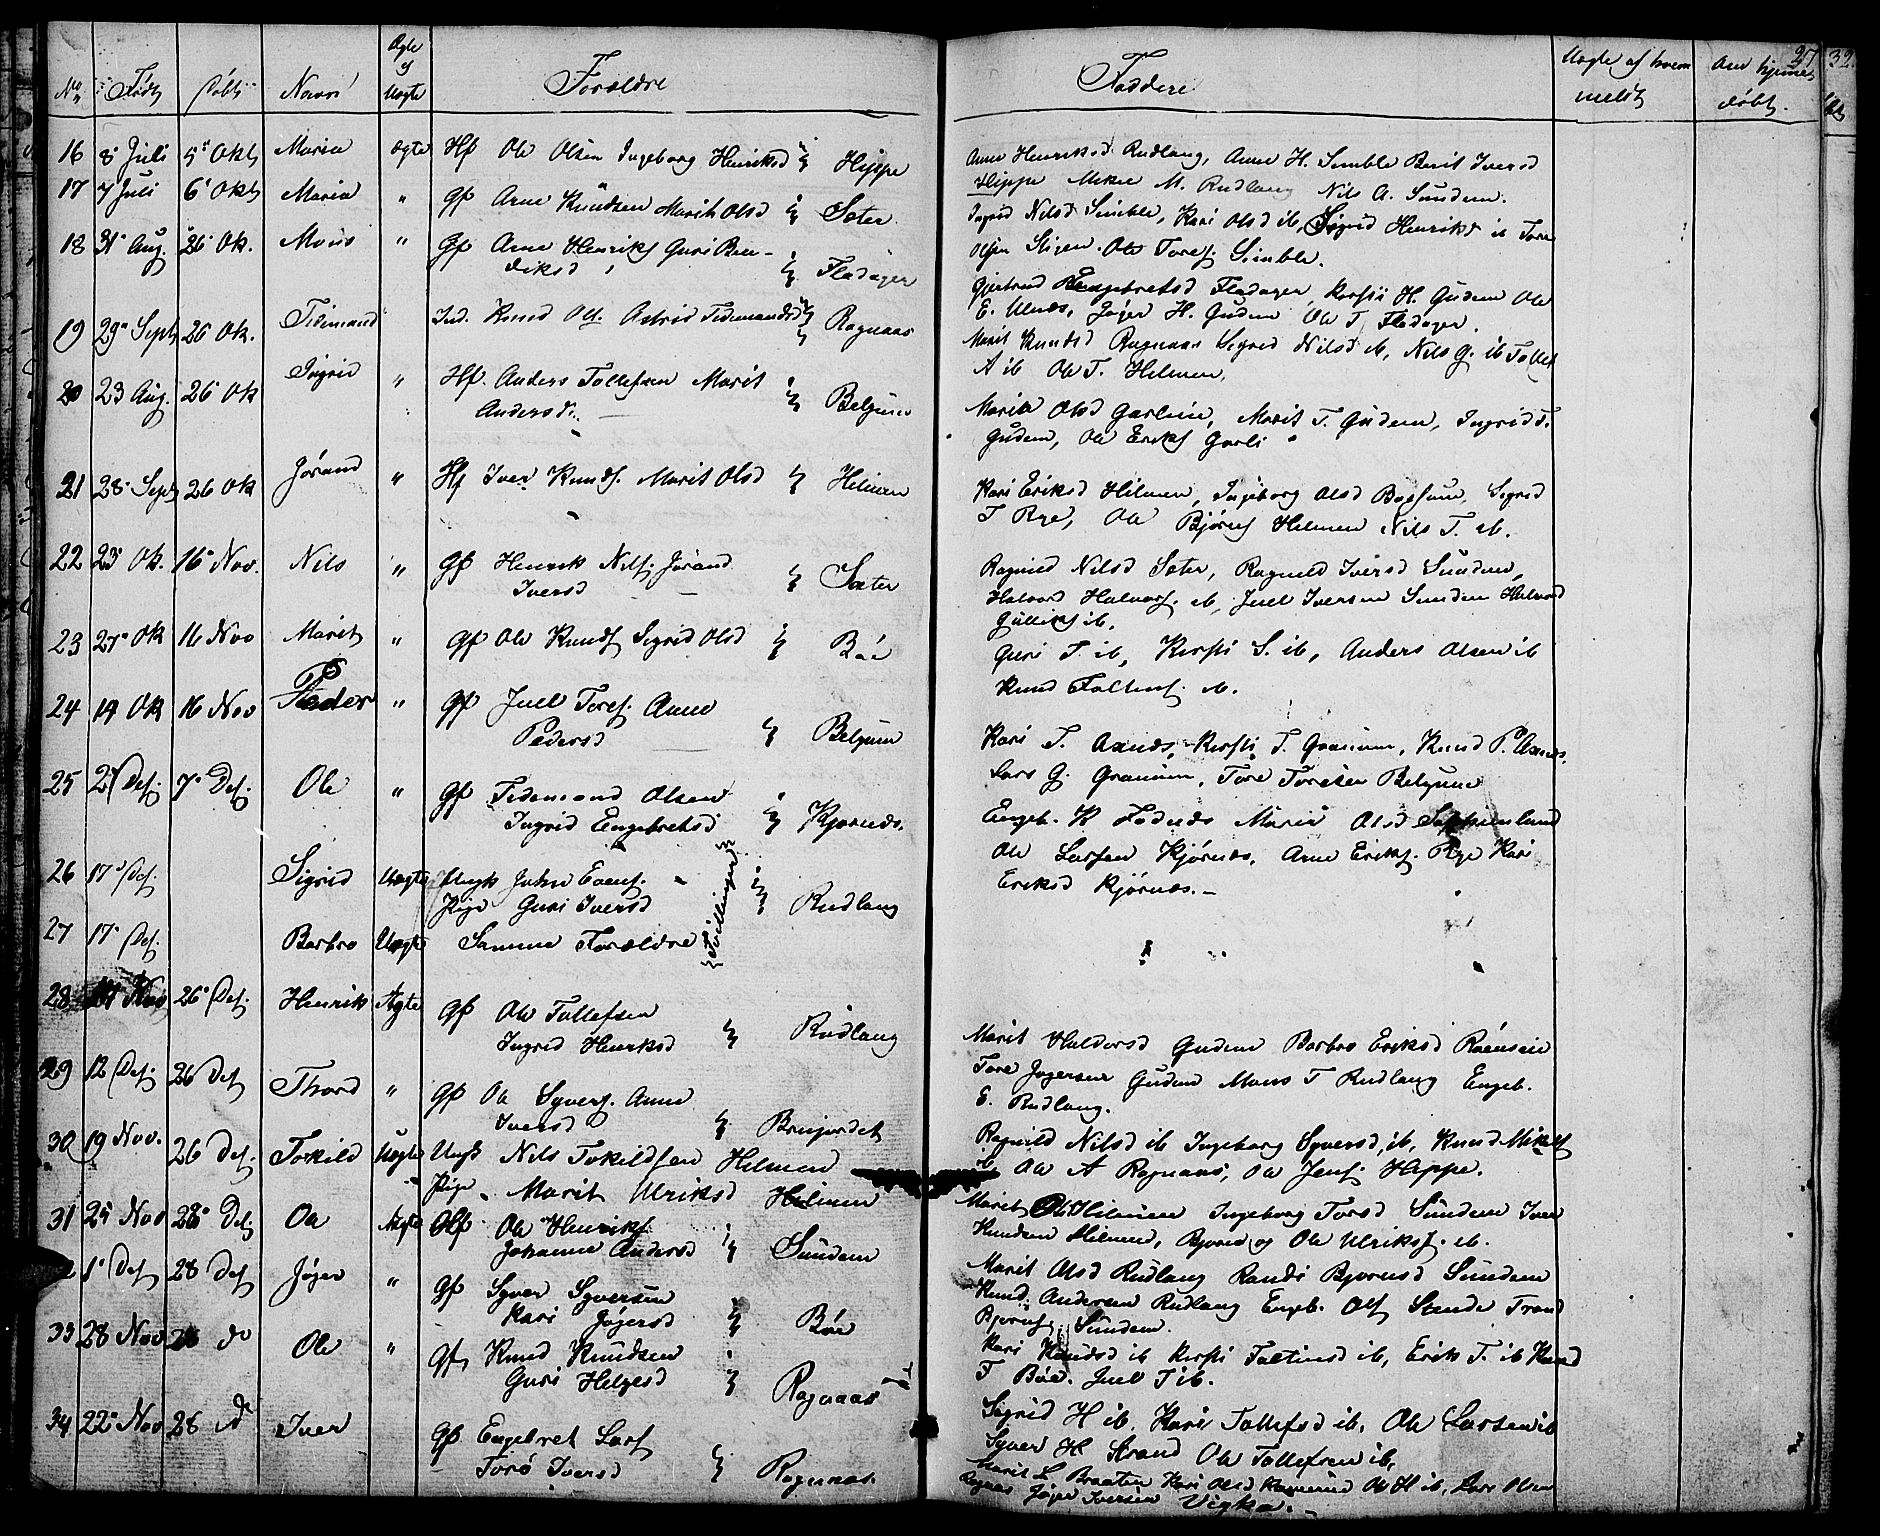 27 32
No Født Døbt Navn Ægte Uægte Forældre
Faddere Uægte af hvem meldt Om hjemmedøbt
16 8 Juli 5 Okt Maria Ægte Hf Ole Olsen Ingeborg Henriksd Hippe
17 7 Juli 6 Okt Maria " Gf Arne Knudsen Marit Olsd Sæter
18 31 Aug. 26 Ok. Mons " Gf Arne Henriks Guri Ben-
diksd Fladager
19 29 Sept 26 Ok. Tidemand Ind. Knud Ols. Astrid Tidemandsd Ragnaas
20 23 Aug. 26 Ok Ingrid " Hf. Anders Tollefsen Marit
Andersd. Belgum
21 28 Sept 26 Ok Jørand " Hf Iver Knuds. Marit Olsd Hilmen
22 23 Ok. 16 Nov. Nils " Gf Henrik Nils. Jørand
Iversd Sæter
23 27 Ok 16 Nov Marit " Gf Ole Knuds Sigrid Olsd Bøe
24 14 Ok 16 Nov Peder " Gf Juel Tores. Anne
Pedersd Belgum
25 27 Det. 7 Det. Ole " Gf Tidemand Olsen
Ingrid Engebretsd Kjørnæs.
26 17 Det. Sigrid Uægte Ungk John Evens.
Pige Guri Iversd Rudlang
Tvillinger
27 17 Det. Barbro Uægte Samme Forældre
28 14 Nov 26 Det. Henrik Ægte Gf Ole Tollefsen
Ingrid Henriksd Rudlang
29 12 Det. 26 Det Thord " Gf Ole Syvers. Anne
Iversd Brujordet
30 19 Nov. 26 Det. Tokild Uægte Ungk Nils Tokildsen Hilmen
Pige Marit Ulriksd Hilmen
31 25 Nov 28 Det. Ole Ægte Ole Henriks.
Johanne Andersd Sundem
1 Det 28 Det Jøger " Gf Syver Syversen
Kari Jøgersd Bøe
33 28 Nov 28 do Ole " Gf Knud Knudsen
Guri Helgesd Ragnaas
34 22 Nov 28 do Iver Gf Engebret Lars
Torø Iversd Ragnaas.
Anne Henriksd Rudlang, Anne H. Semble Berit Iversd
Hippe M. Rudlang Nils A. Sundem.
Ingrid Nilsd Semble, Kari Olsd ib, Sigrid Henriksd ib Tore
Olsen Stigen. Ole Tores. Semble.
Gjertrud Engebretsd Fladager, Kersti H. Gudem Ole
E. Ulnæs, Jøger H. Gudem Ole T. Fladager.
Marit Knudsd Ragnaas Sigrid Nilsd ib, Nils G. ib Tollef
A ib Ole T. Hilmen.
Marit Olsd Garlien, Marit T. Gudem, Ingrid T.
Gudem, Ole Eriks Garli
Kari Eriksd Hilmen, Ingeborg Olsd Sigrid
T Rye, Ole Bjørns Hilmen Nils T. ib.
Ragnild Nilsd Sæter, Ragnild Iversd Sundem,
Halvord Halvors. ib, Juel Iversen Sundem Halvord
Gulliks ib.
Guri T. ib, Kersti S. ib, Anders Olsen ib
Knud ib.
Kari T. Aanæs, Kersti T. Granum, Knud P. Aanæs.
Lars G. Granum, Tore Toresen Belgum
Engeb. K. Fodnæs Marie Olsd
Ole Larsen Kjørnæs, Arne Eriks. Rye Kari
Eriksd Kjørnæs.
Marit Haldorsd Gudem Barbro Eriksd
Tore Jøgersen Gudem Mons T Rudlang Engeb.
E. Rudlang.
Ragnild Nilsd ib Ingeborg Syversd, ib, Knud Mikels
ib, Ole A Ragnaas, Ole Jens. Hippe.
Marit Hilmen Ingeborg Torsd Sundem Iver
Knudsen Hilmen, Bjørn og Ole Ulriks. ib.
Marit Olsd Rudlang Randi Bjørnsd Sundem
Knud Andersen Rudlang Engeb. Ols Strande Trond
Bjørns Sundem.
Kari Knudsd ib Kersti Tostensd ib, Erik T. ib Knud
T Bøe. Juel T ib.
Sigrid H ib, Kari Tollefsd ib, Ole Larsen ib
Syver H Strand Ole Tollefsen ib,
Marit L Braaten Kari Olsd Ole H ib, Lars Olsen
Ragnaas Jøger Iversen